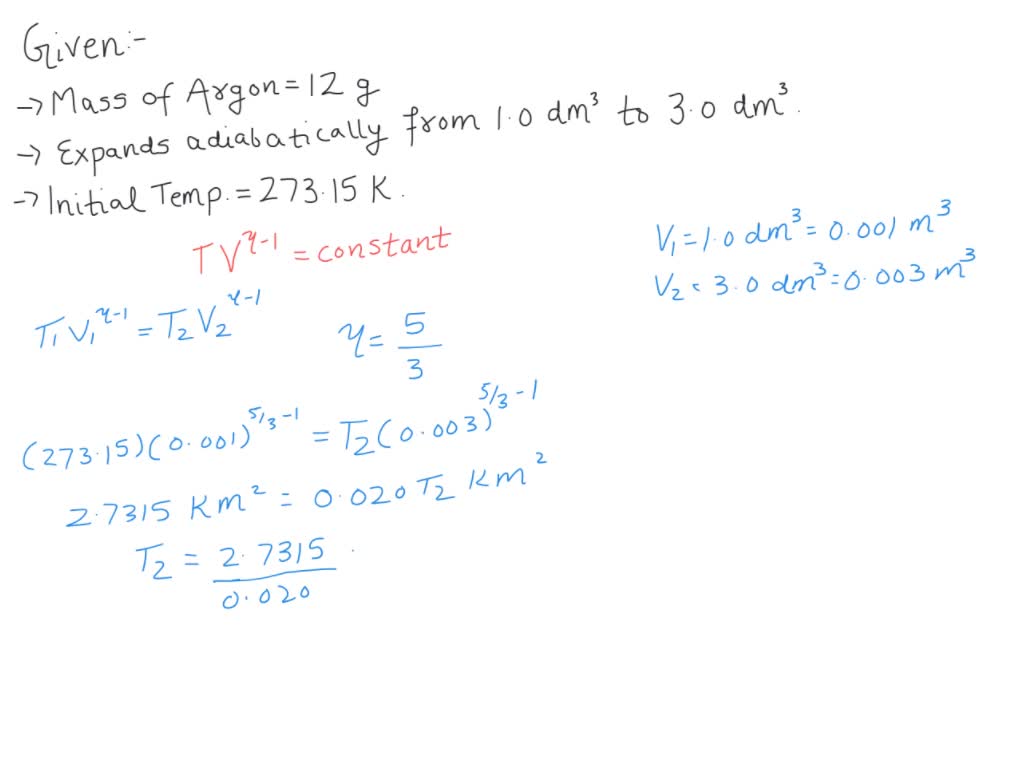 Given:-
→ Mass of Argon = 12 g
→ Expands adiabatically from 1.0 dm³ to 3.0 dm³.
→ Initial Temp. = 273.15 K.
TV^γ-1 = constant
V₁ = 1.0 dm³ = 0.001 m³
V₂ = 3.0 dm³ = 0.003 m³
T₁V₁^γ-1 = T₂V₂^γ-1
γ = 5/3
(273.15)(0.001)^5/3-1 = T₂(0.003)^5/3-1
2.7315 Km² = 0.020 T₂ Km²
T₂ = 2.7315/0.020